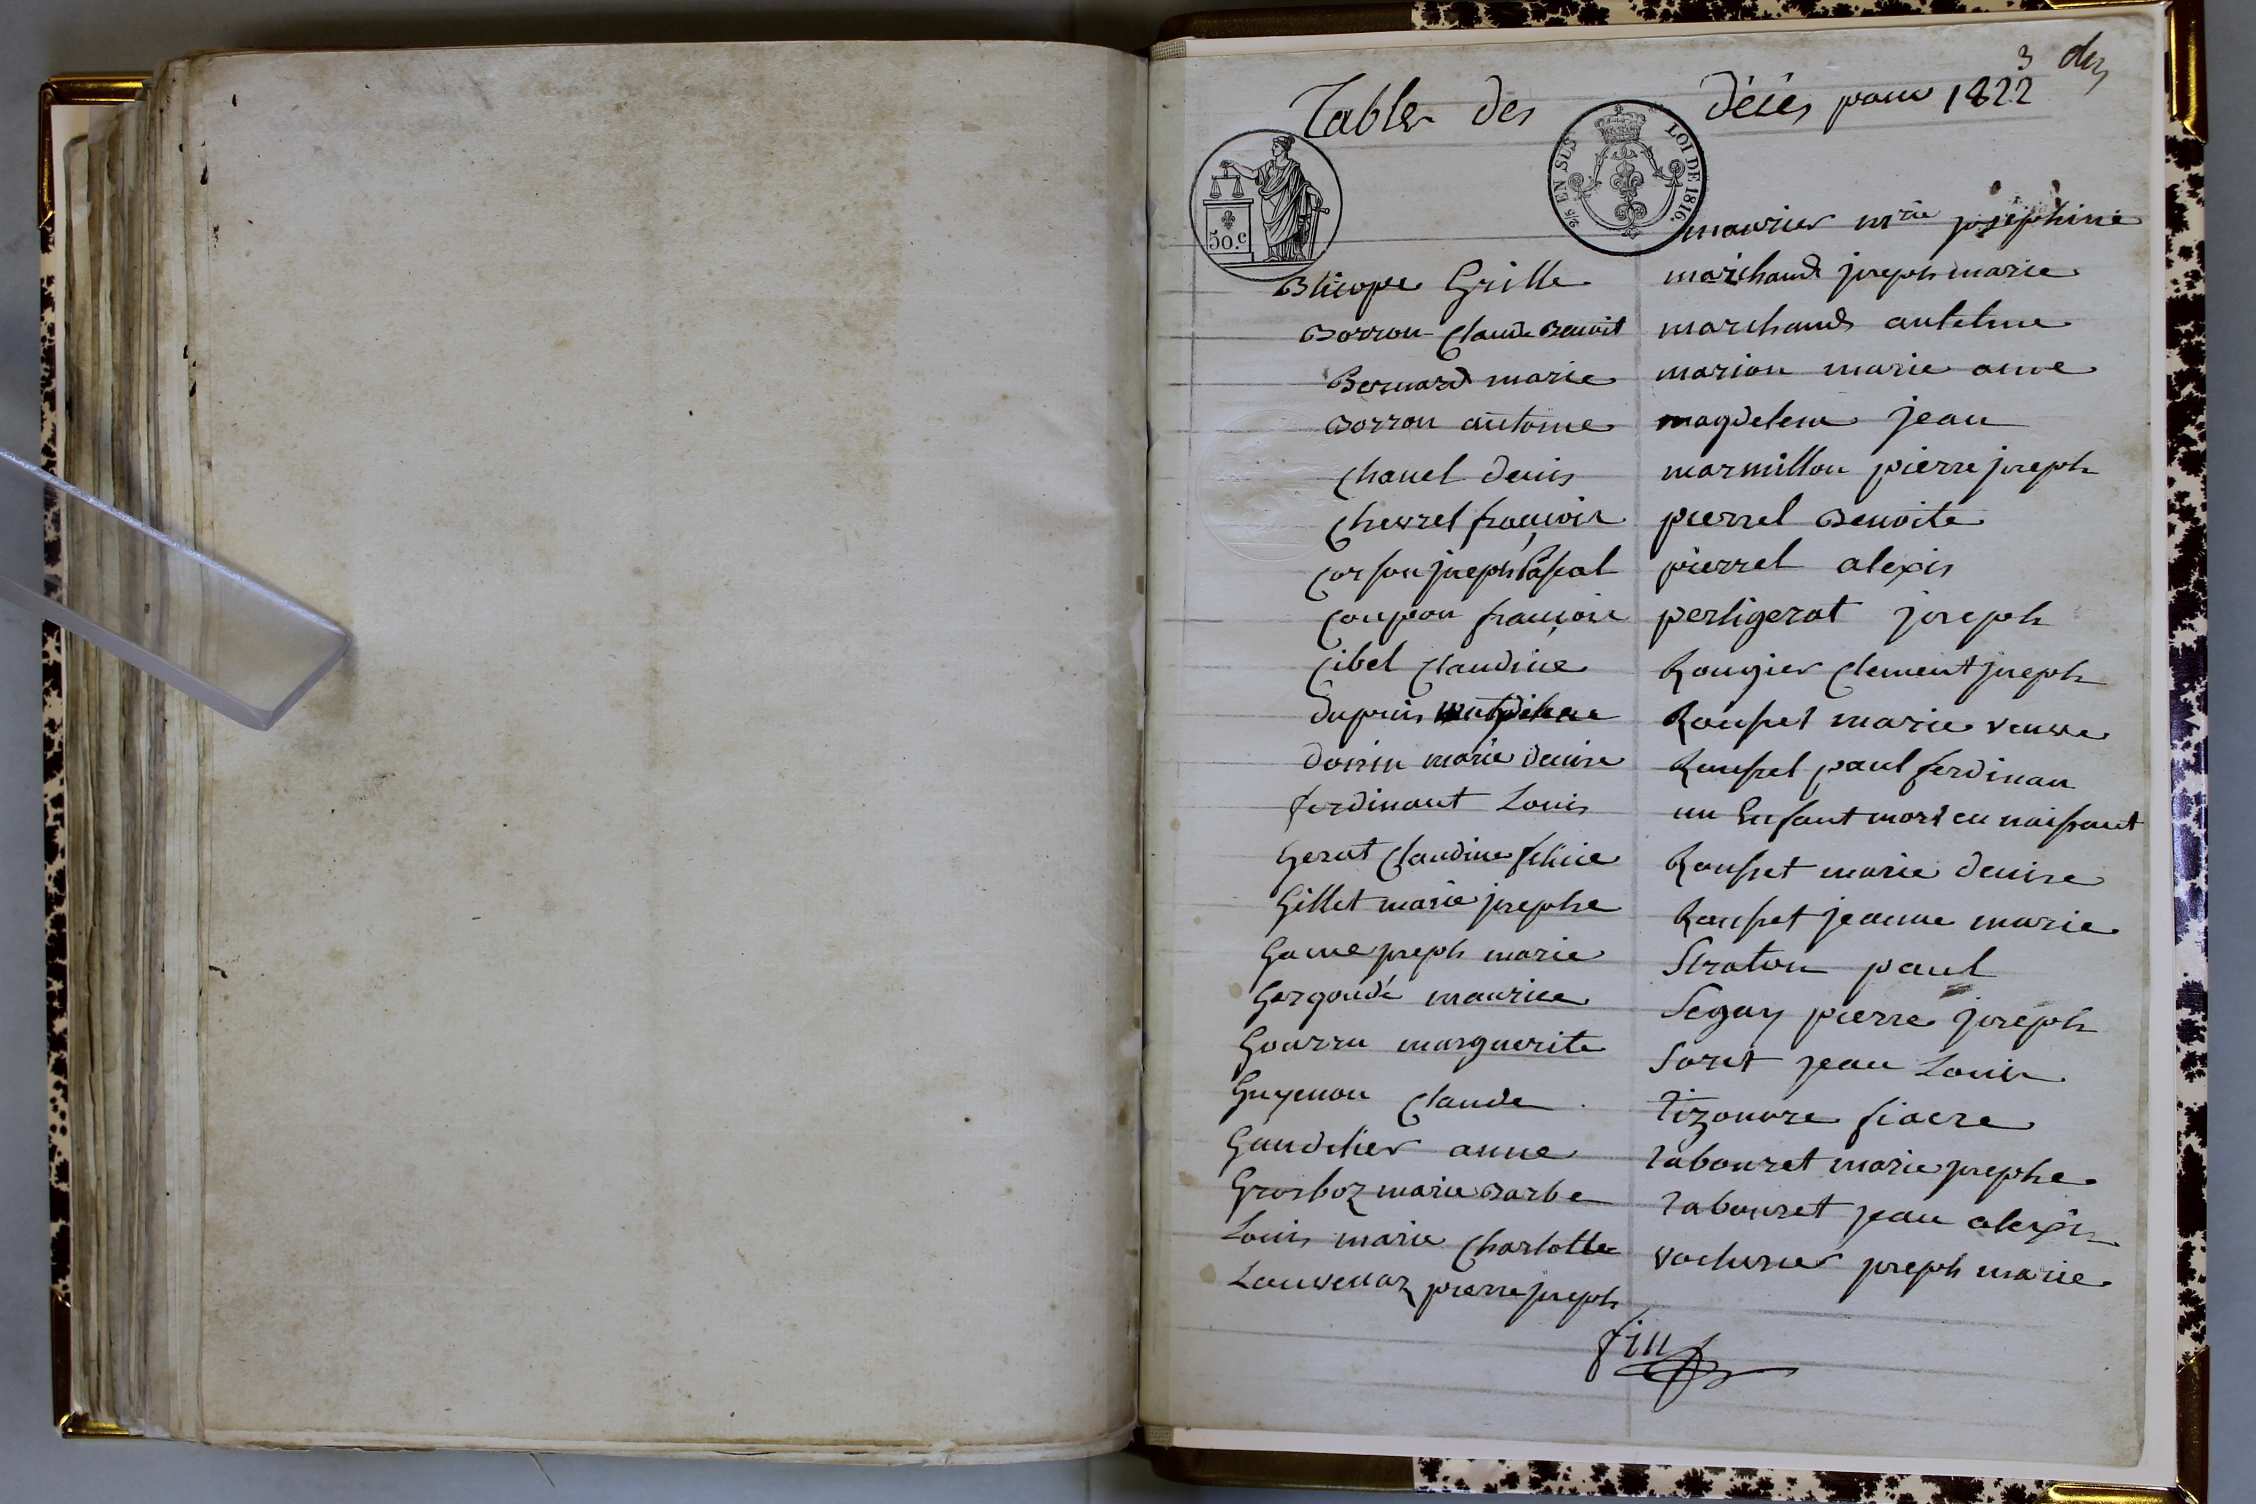 3 dis
Table des décés pour 1822
2/5 EN SUS LOI DE 1816.
50.c
Blicope Grille
Borron Claude Benoit
Bernard marie
Borron antoine
Chanel denis
Chevrel françois
Corson joseph Pascal
Coupon françois
Cibel Claudine
dupuis
Doisin marie denise
ferdinant Louis
Gerat Claudine felicie
Gillet marie josephe
Game joseph marie
Gergondé maurice
Gourru marguerite
Guyenon Claude
Gaudelier anne
Grosboz marie Barbe
Louis marie Charlotte
Louvenaz pierre joseph
maurier mrie josephine
marchand joseph marie
marchand antelme
marion marie anne
magdelene jean
marmillon pierre joseph
pierrel Benoite
pierrel alexis
pertigerat joseph
Rougier Clement joseph
Rousset marie veuve
Rousset paul ferdinan
un Enfant mort en naissant
Rousset marie denise
Rousset jeanne marie
Straton paul
Seguy pierre joseph
Soret jean Louis
Tizonvre fiacre
Tabouret marie josephe
Tabouret jean alexis
voiturier joseph marie
fin